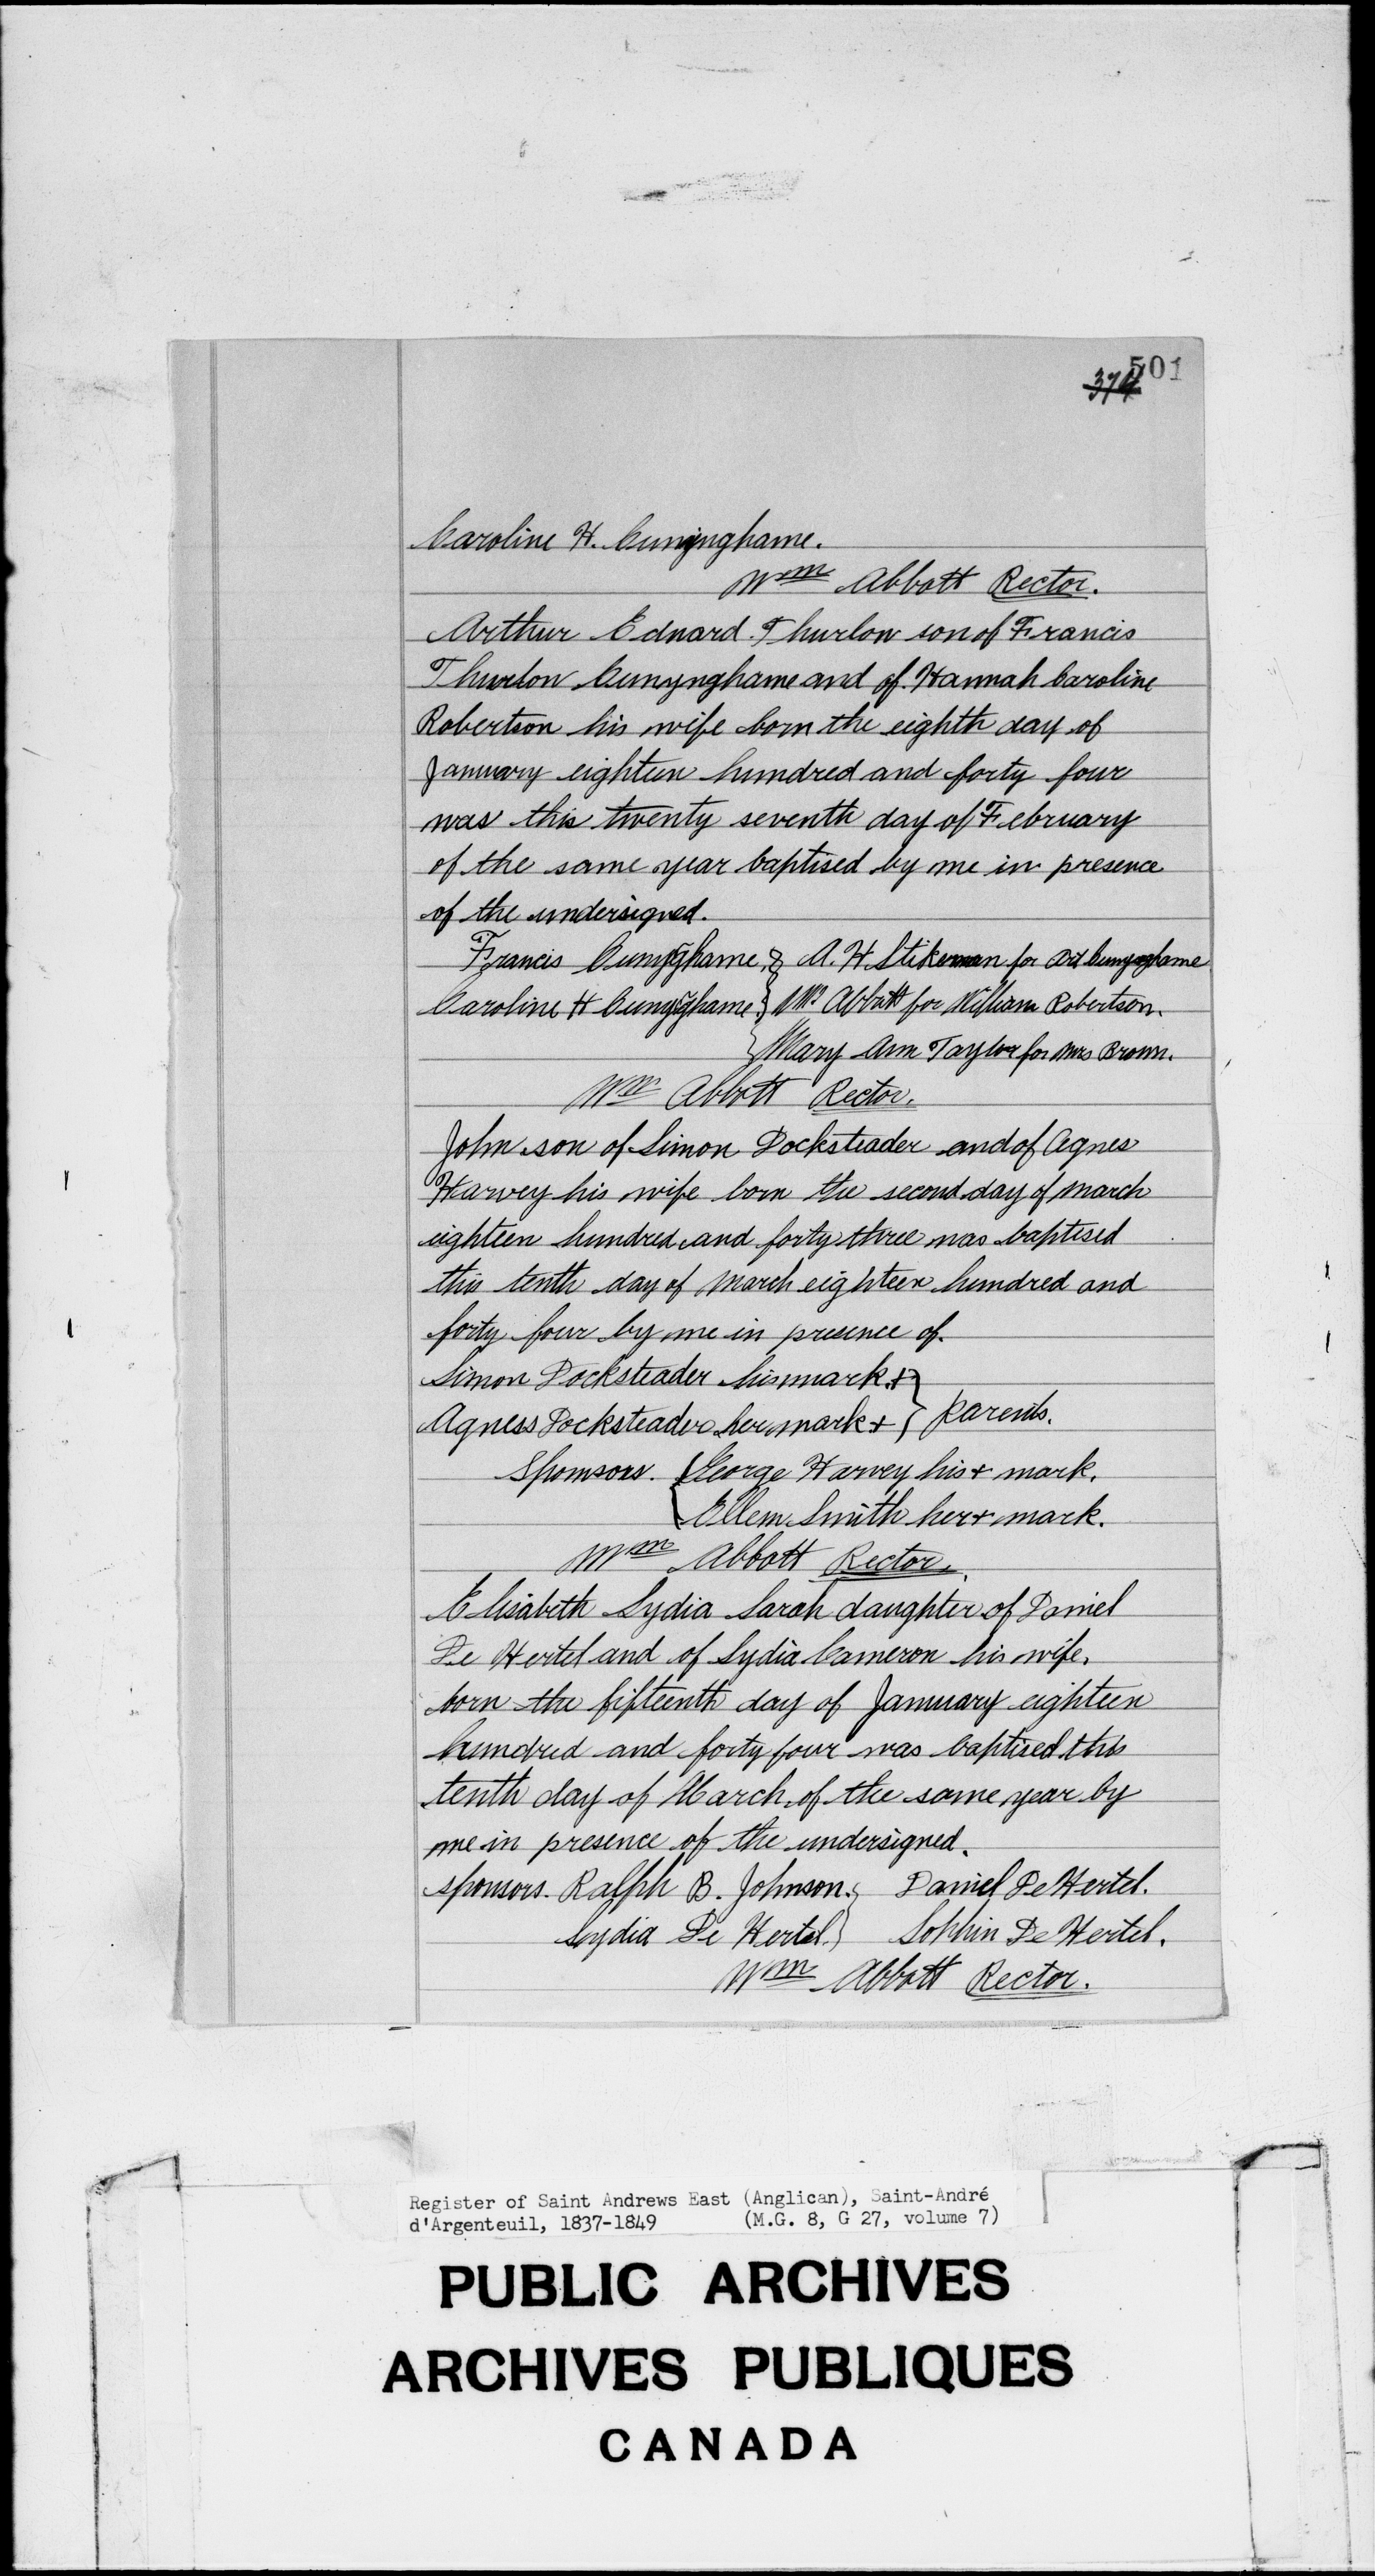 501
374
Caroline H. Cunynghame.
Wm Abbott Rector.
Arthur Edward Thurlow son of Francis
Thurlow Cunynghame and of Hannah Caroline
Robertson his wife born the eighth day of
January eighteen hundred and forty four
was this twenty seventh day of February
of the same year baptised by me in presence
of the undersigned.
Francis Cunynghame. } A. H Stikeman for Art Cunynghame
Caroline H Cunynghame. } Abbott for William Robertson.
} Mary Ann Taylor for Mrs Brown.
Wm Abbott Rector.
John son of Simon Docksteader and of Agnes
Harvey his wife born the second day of March
eighteen hundred and forty three was baptised
this tenth day of March eighteen hundred and
forty four by me in presence of.
Simon Docksteader his mark +
Agness Docksteader her mark + } Parents.
Sponsors. { George Harvey his + mark.
{ Ellem Smith her + mark.
Wm Abbott Rector.
Elisabeth Lydia Sarah daughter of Daniel
De Hertel and of Lydia Cameron his wife.
born the fifteenth day of January eighteen
hundred and forty four was baptised this
tenth day of March of the same year by
me in presence of the undersigned.
sponsors. Ralph B. Johnson. } Daniel De Hertel.
Lydia De Hertel. } Sophin De Hertel.
Wm Abbott Rector.
Register of Saint Andrews East (Anglican), Saint-André
d'Argenteuil, 1837-1849 (M.G. 8, G 27, volume 7)
PUBLIC ARCHIVES
ARCHIVES PUBLIQUES
CANADA